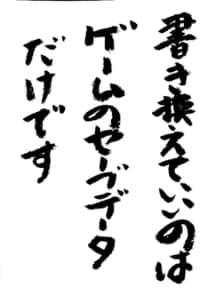 書き換えていいのは
ゲームのセーブデータ
だけです